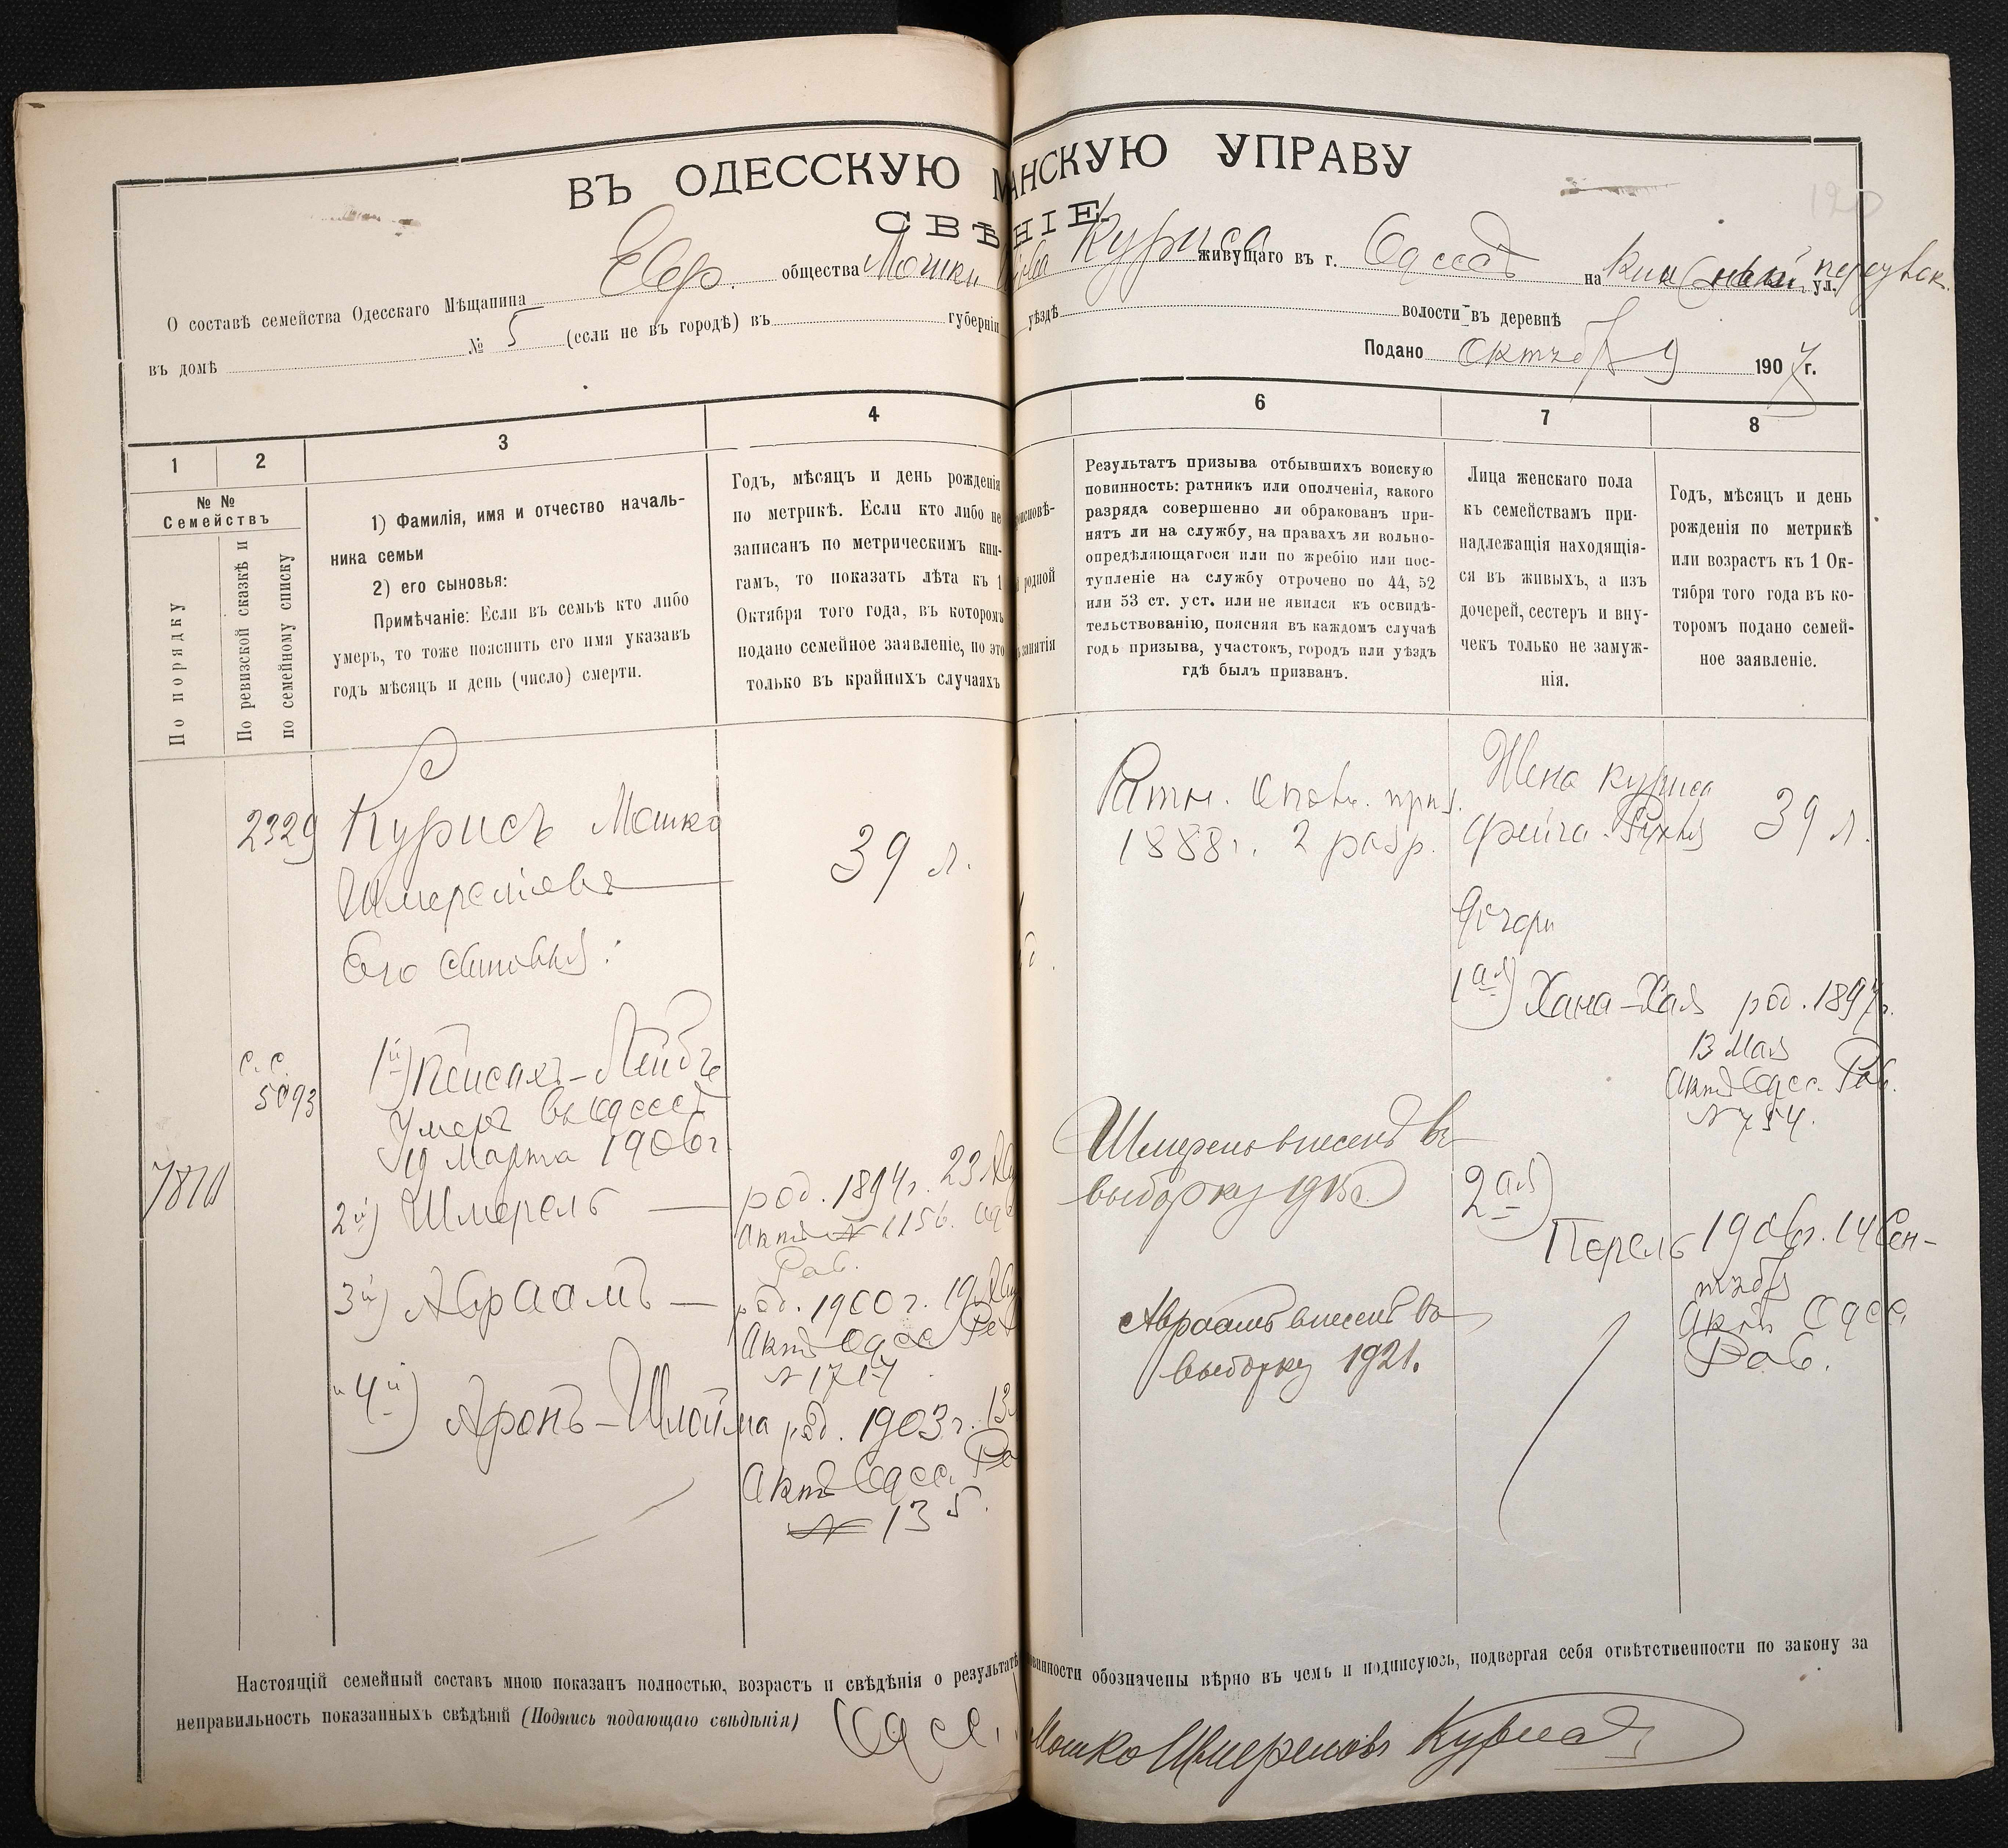 ВЪ ОДЕССКУЮ М АНСКУЮ УПРАВУ
СВѢ НІЕ
О составѣ семейства Одесскаго Мѣщанина Евр. общества Мошки Куриса живущаго въ г. Одессѣ на ул. переулок
въ домѣ № 5 (если не въ городѣ) въ губерніи уѣздѣ волости въ деревнѣ
Подано Октября 9 1907 г.
1 2 3 4 6 7 8
№ №
Семействъ
По порядку
По ревизской сказкѣ и
по семейному списку
1) Фамилія, имя и отчество началь-
ника семьи
2) его сыновья:
Примѣчаніе: Если въ семьѣ кто либо
умеръ, то тоже пояснить его имя указавъ
годъ мѣсяцъ и день (число) смерти.
Годъ, мѣсяцъ и день рожденія
по метрикѣ. Если кто либо не
записанъ по метрическимъ кни-
гамъ, то показать лѣта къ 1
Октября того года, въ которомъ
подано семейное заявленіе, но это
только въ крайнихъ случаяхъ
родной
занятія
Результатъ призыва отбывшихъ воискую
повинность: ратникъ или ополченія, какого
разряда совершенно ли обракованъ при-
нятъ ли на службу, на правахъ ли вольно-
опредѣляющагося или по жребію или пос-
тупленіе на службу отрочено по 44, 52
или 53 ст. уст. или не явился къ освидѣ-
тельствованію, поясняя въ каждомъ случаѣ
годъ призыва, участокъ, городъ или уѣздъ
гдѣ былъ призванъ.
Лица женскаго пола
къ семействамъ при-
надлежащія находящія-
ся въ живыхъ, а изъ
дочерей, сестеръ и вну-
чекъ только не замуж-
нія.
Годъ, мѣсяцъ и день
рожденія по метрикѣ
или возрастъ къ 1 Ок-
тября того года въ ко-
торомъ подано семей-
ное заявленіе.
2329
Курисъ Мошко
Шмерелевъ
39 л.
Его сыновья:
с. с.
5093
1й) Пейсахъ-Лейбъ
Умеръ въ Одессѣ
19 Марта 1906 г
2й) Шмерель
род. 1894 г. 23
Актъ № 1156. Од
Раб.
3й) Абраамъ
род. 1900 г. 19
Актъ Одесс
№ 1717
и 4й) Аронъ-Шлойма
род. 1903 г. 13
Актъ Одесс. Ра
№ 135.
Ратн. Ополч. приз.
1888 г. 2 разр.
Шмерель внесенъ въ
выборку 1915 г.
Авраамъ внесенъ въ
выборку 1921.
Жена Куриса
Фейга-Рухля
39 л.
Дочери
1ая) Хана-Хая
род. 1897 г.
13 Мая
Актъ Одесс. Раб.
№ 754.
2ая)
Перель
1906 г. 14 Сен-
тября
Актъ Одесс.
Раб.
Настоящій семейный составъ мною показанъ полностью, возрастъ и свѣдѣнія о результатѣ винности обозначены вѣрно въ чемъ и подписуюсь, подвергая себя отвѣтственности по закону за
неправильность показанныхъ свѣдѣній (Подпись подающаго свѣдѣнія)
Мошко Шмерелевъ Курисъ